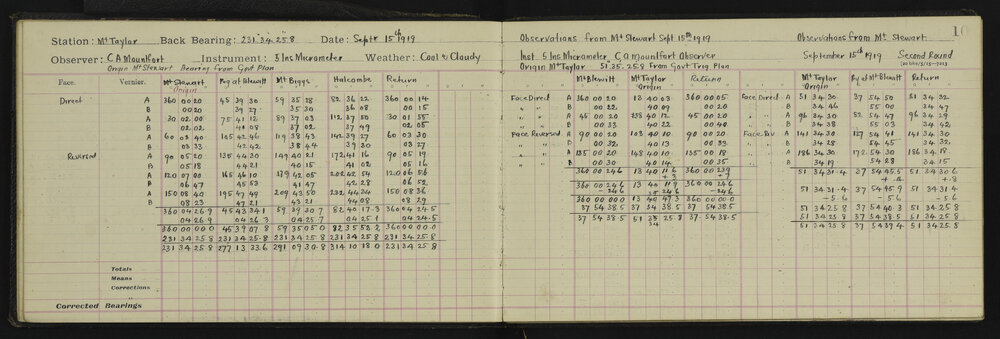 Station: Mt Taylor Back Bearing: 231.34.25.8 Date: Septr 15th 1919
Observer: C A Mountfort Instrument: 5 Ins Micrometer Weather: Cool & Cloudy
Origin Mt Stewart Bearing from Govt Plan
Face. Vernier. Mt Stewart Peg at Blewitt Mt Biggs Halcombe Return
Origin
Direct A 360 00 20 45 39 30 59 35 28 82 36 22 360 00 14
B 00 20 39 27 35 30 36 08 00 15
A 30 02 00 75 41 12 89 37 03 112 37 50 30 01 55
B 02 02 41 08 37 02 37 49 02 05
A 60 03 40 105 42 46 119 38 42 142 39 27 60 03 30
B 03 33 42 42 38 44 39 30 03 27
Reversed A 90 05 20 135 44 30 149 40 21 172 41 16 90 05 19
B 05 18 44 21 40 15 41 02 05 16
A 120 07 00 165 46 10 179 42 05 202 42 54 120 06 56
B 06 47 45 53 41 47 42 28 06 52
A 150 08 40 195 47 49 209 43 50 232 44 34 150 08 36
B 08 23 47 21 43 21 44 08 08 29
360 04 26.9 45 43 34.1 59 39 30.7 82 40 17.3 360 04 24.5
04 26.9 04 26.3 04 25.7 04 25.1 04 24.5
360 00 00.0 45 39 07.8 59 35 05.0 82 35 52.2 360 00 00.0
231 34 25.8 231 34 25.8 231 34 25.8 231 34 25.8 231 34 25.8
231 34 25.8 277 13 33.6 291 09 30.8 314 10 18.0 231 34 25.8
Totals
Means
Corrections
"
Corrected Bearings
10
Observations from Mt Stewart Sept 15th 1919
Inst 5 Ins Micrometer C A Mountfort Observer
Origin Mt Taylor 51.35.25.8 From Govt Trig Plan
Mt Blewitt Mt Taylor Return
Origin
Face Direct A 360 00 20 13 40 03 360 00 05
" " B 00 22 40 09 00 20
" " A 45 00 20 58 40 12 45 00 20
" " B 00 32 40 22 00 40
Face Reversed A 90 00 20 103 40 10 90 00 20
" " B 00 32 40 13 00 33
" " A 135 00 20 148 40 10 135 00 18
" " B 00 30 40 14 00 35
360 00 24.6 13 40 11.6 360 00 23.9
+.3 +.7
360 00 24.6 13 40 11.9 360 00 24.6
-24.6 -24.6 -24.6
360 00 00.0 13 40 47.3 360 00 00.0
37 54 38.5 37 54 38.5 37 54 38.5
37 54 38.5 51 34 25.8 37 54 38.5
34
Observations from Mt Stewart
September 15th 1919 Second Round
Mt Taylor Peg at Mt Blewitt Return
Origin
Face Direct A 51 34 30 37 54 50 51 34 32
" " B 34 46 55 00 34 47
" " A 96 34 30 82 54 47 96 34 29
" " B 34 38 55 03 34 42
Face Rev A 141 34 30 127 54 41 141 34 30
" " B 34 28 54 45 34 32
" " A 186 34 30 172 54 30 186 34 18
" " B 34 19 54 28 34 15
51 34 31.4 37 54 45.5 51 34 30.6
+.4 +.8
51 34 31.4 37 54 45.9 51 34 31.4
-5.6 -5.6 -5.6
51 34 25.8 37 54 40.3 51 34 25.8
51 34 25.8 37 54 38.5 51 34 25.8
51 34 25.8 37 54 39.4 51 34 25.8